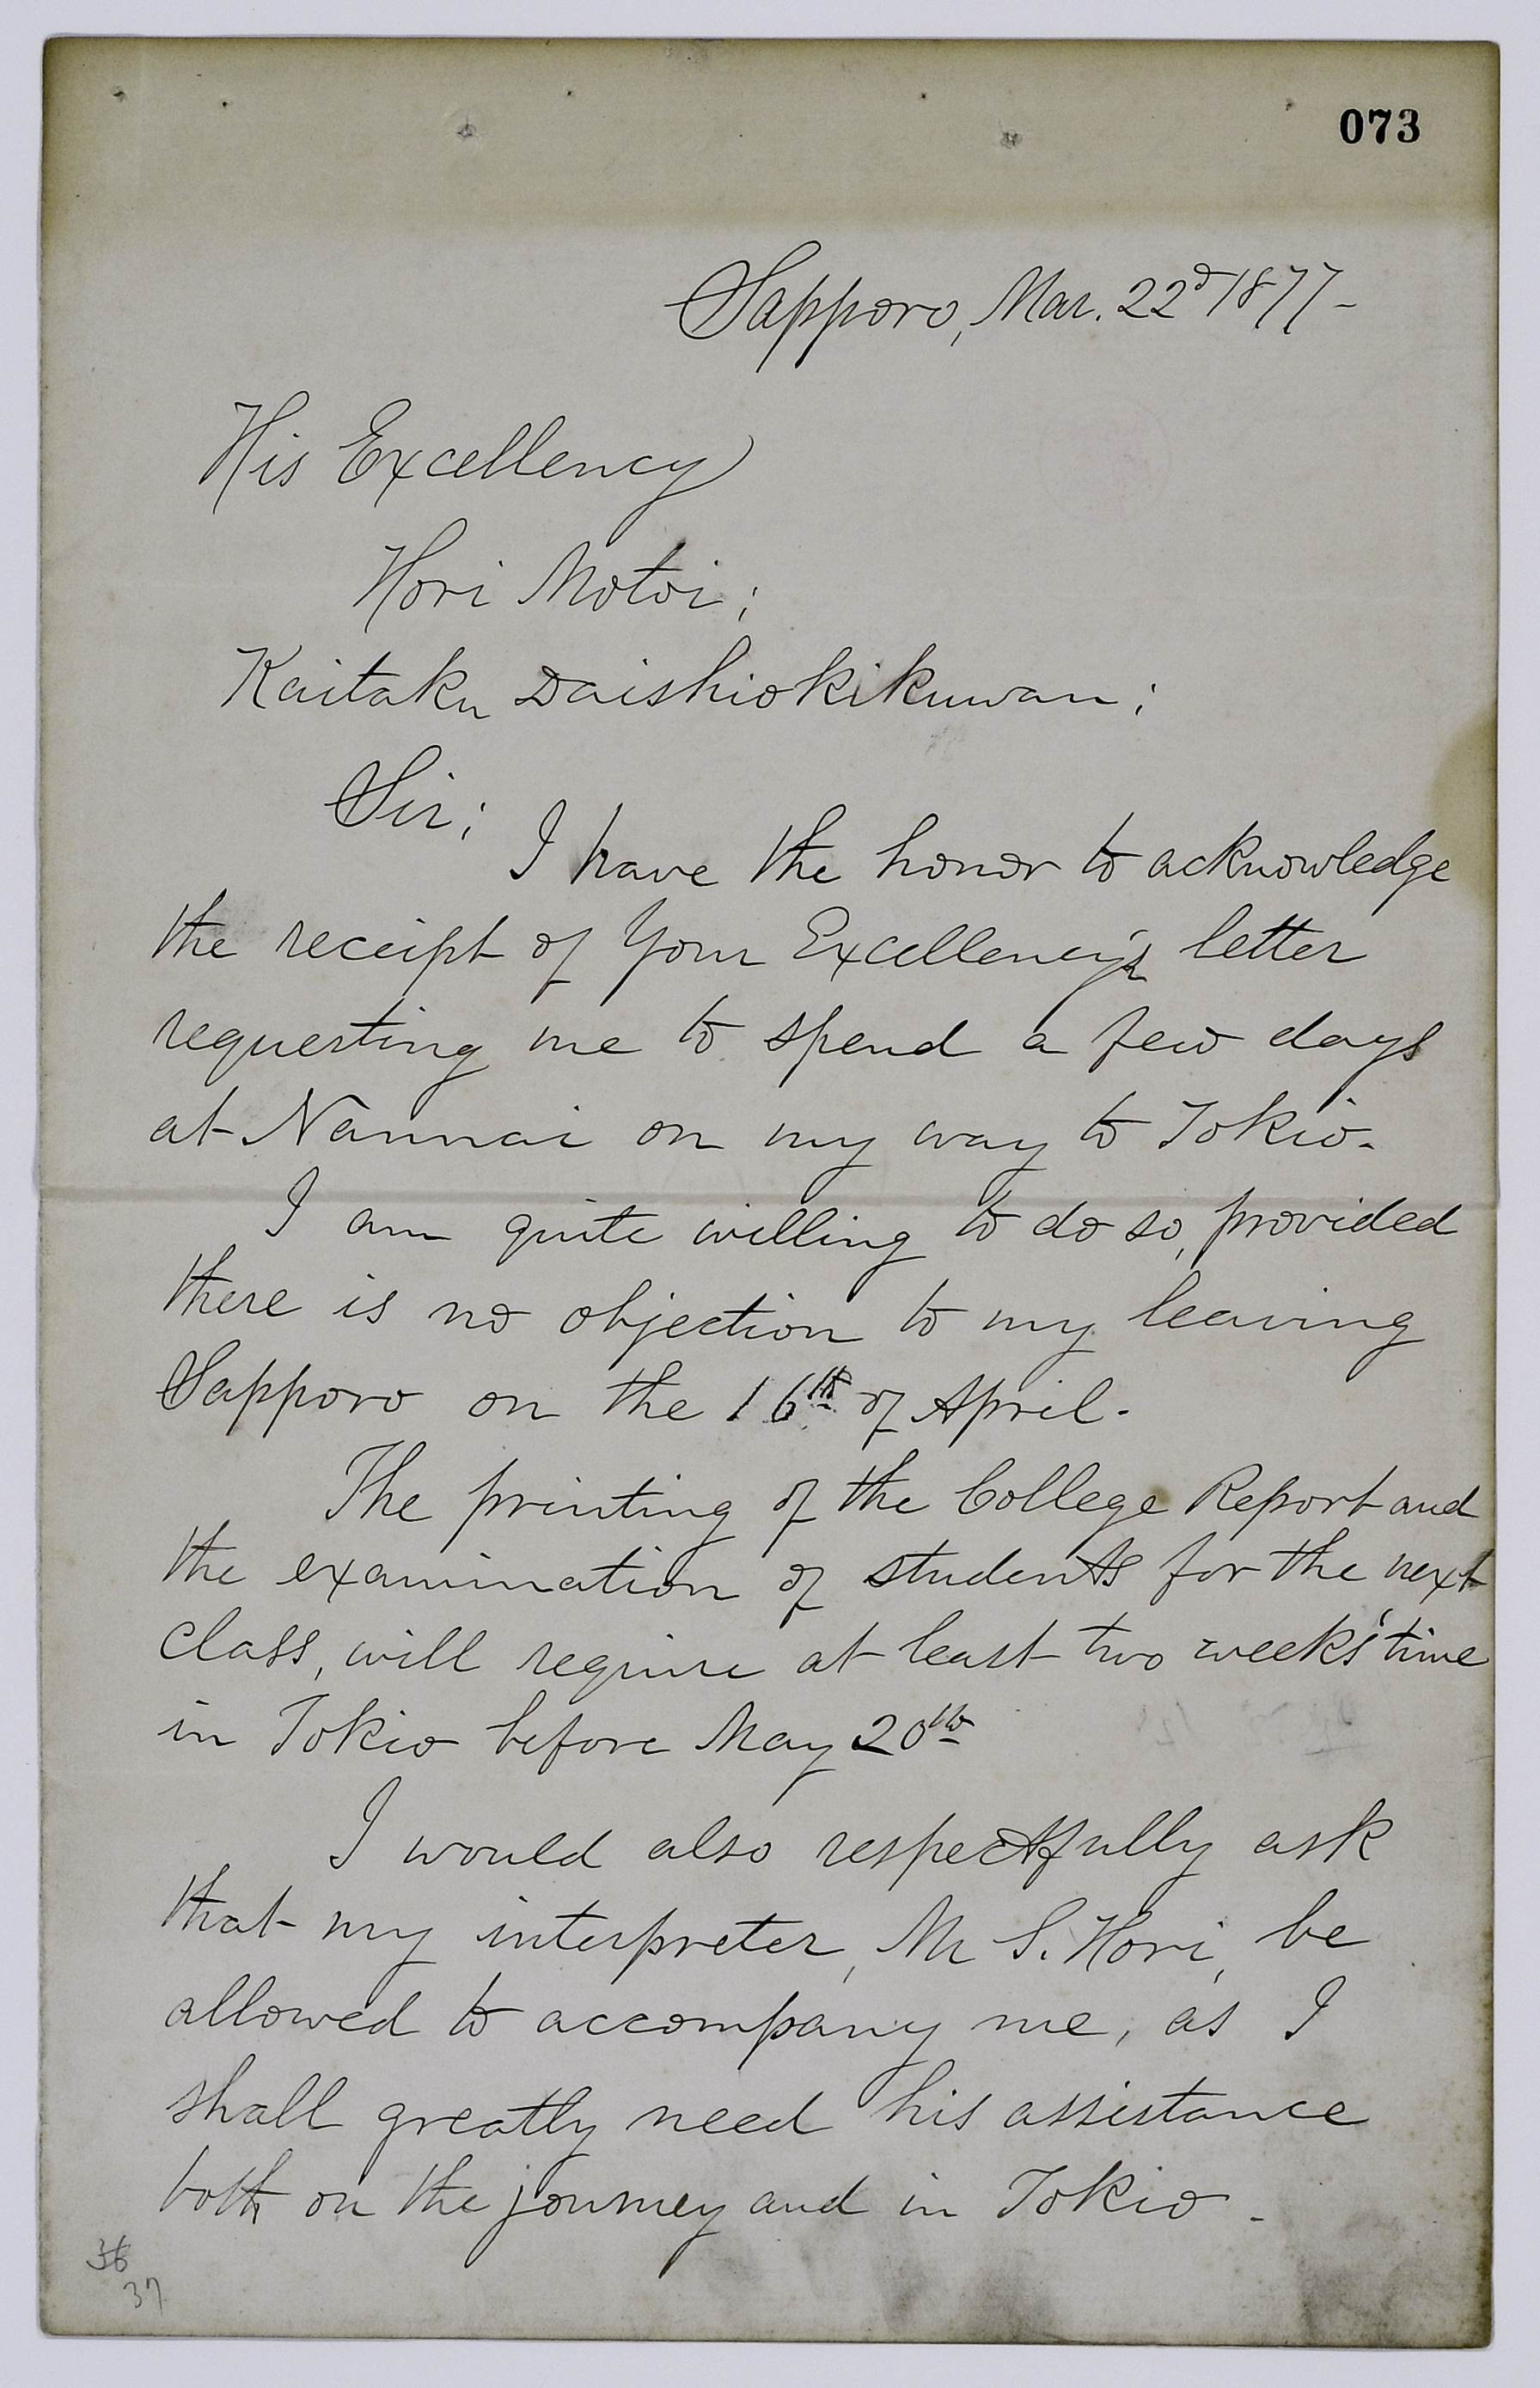 073
Sapporo, Mar. 22d 1877-
His Excellency
Hori Motoi;
Kaitaku Daishiokikuwan;
Sir;
I have the honor to acknowledge
the receipt of Your Excellency's letter
requesting me to spend a few days
at Nannai on my way to Tokio.
I am quite willing to do so, provided
there is no objection to my leaving
Sapporo on the 16th of April.
The printing of the College Report and
the examination of students for the next
class, will require at least two weeks' time
in Tokio before May 20th
I would also respectfully ask
that my interpreter, Mr S. Hori, be
allowed to accompany me, as I
shall greatly need his assistance
both on the journey and in Tokio.
36
37